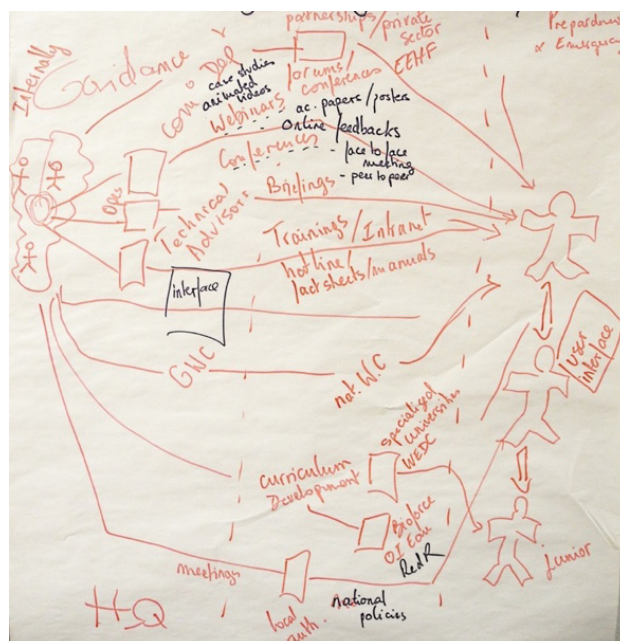 partnerships/private
sector
EEHF
Preparedness
& Emergency
Internally
Guidance
forums/
conferences
case studies
animated
videos
Webinars
ac. papers/posters
Online/feedbacks
Conferences
face to face
meeting
- peer to peer
Technical
Advisors
Briefings
Trainings/Intranet
hotline/
factsheets/manuals
interface
GWC
nat. W.C
User
interface
specialized
universities
WEDC
curriculum
Development
Bioforce
RedR
Junior
meetings
HQ
local
auth.
national
policies